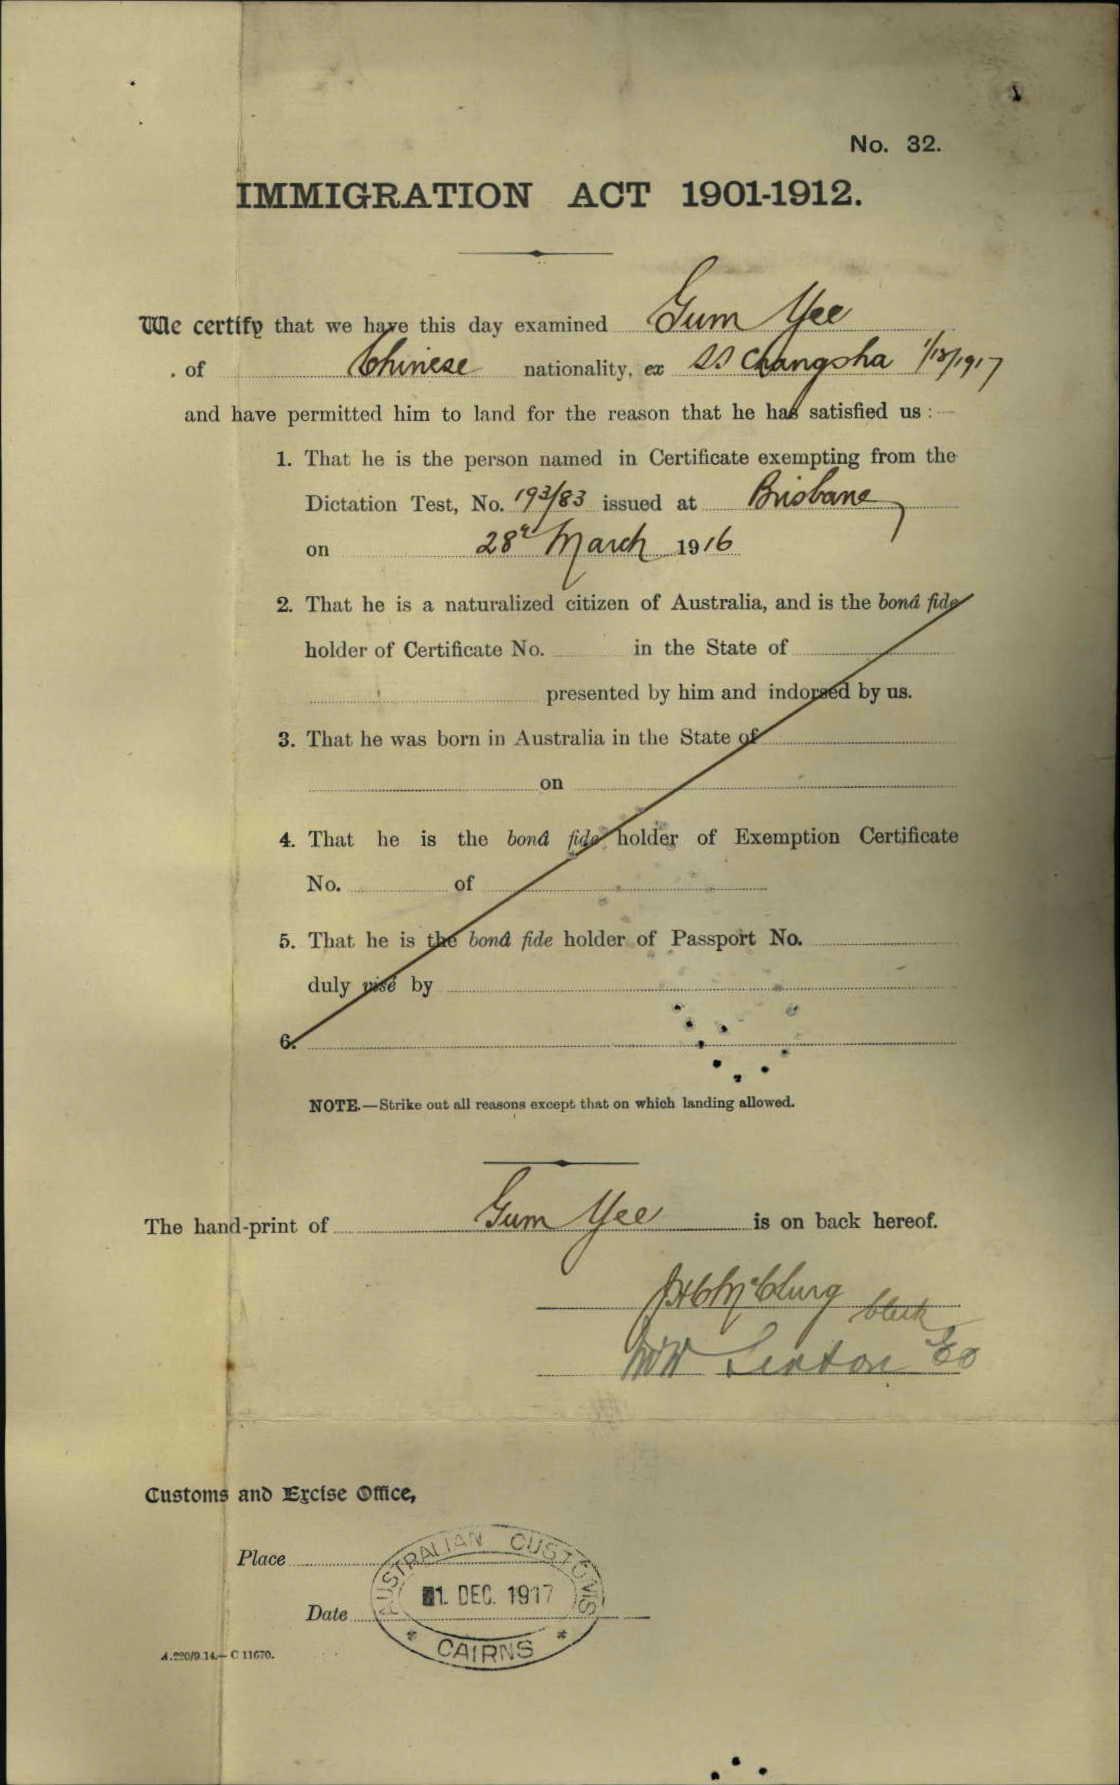 No. 32.
IMMIGRATION ACT 1901-1912.
We certify that we have this day examined Gum Yee
of Chinese nationality, ex SS Changsha 1/12/1917
and have permitted him to land for the reason that he has satisfied us :—
1. That he is the person named in Certificate exempting from the
Dictation Test, No. 193/83 issued at Brisbane
on 28th March 1916
2. That he is a naturalized citizen of Australia, and is the bonâ fide
holder of Certificate No. in the State of
presented by him and indorsed by us.
3. That he was born in Australia in the State of
on
4. That he is the bonâ fide holder of Exemption Certificate
No. of
5. That he is the bonâ fide holder of Passport No.
duly visé by
6.
NOTE.—Strike out all reasons except that on which landing allowed.
The hand-print of Gum Yee is on back hereof.
McClurg Clerk
Sexton EO
Customs and Excise Office,
Place
Date
AUSTRALIAN CUSTOMS
1. DEC. 1917
* CAIRNS *
A.220/9.14.—C 11670.